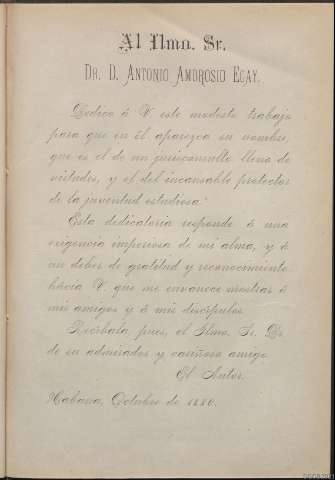 Al Ilmo. Sr.
Dr. D. Antonio Ambrosio Ecay.
Dedico á V. este modesto trabajo
para que en él aparezca su nombre,
que es el de un jurisconsulto lleno de
virtudes, y el del incansable protector
de la juventud estudiosa.
Esta dedicatoria responde á una
exigencia imperiosa de mi alma, y á
un deber de gratitud y reconocimiento
hácia V. que me envanece mostrar á
mis amigos y á mis discípulos.
Recíbala, pues, el Ilmo. Sr. Dr.
de su admirador y cariñoso amigo
El Autor.
Habana, Octubre de 1886.